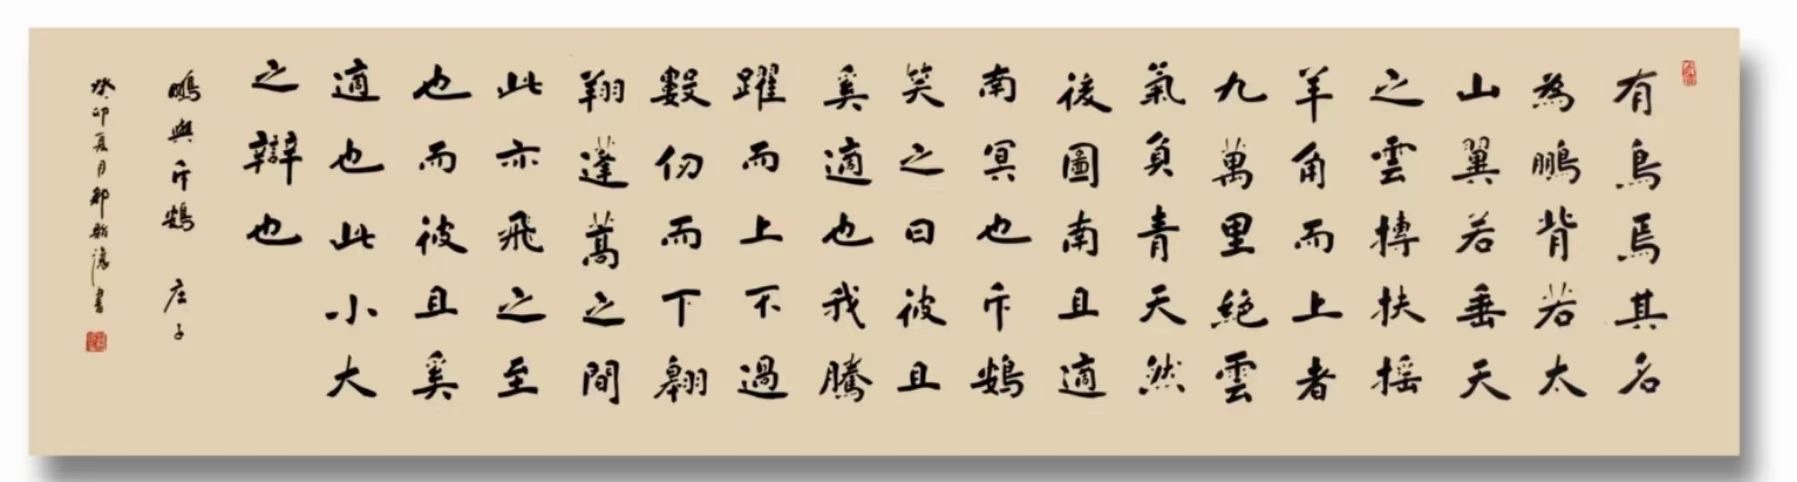 有鳥焉其名
為鵬背若太
山翼若垂天
之雲摶扶摇
羊角而上者
九萬里絕雲
氣負青天然
後圖南且適
南冥也斥鷃
笑之曰彼且
奚適也我騰
躍而上不過
數仞而下翱
翔蓬蒿之間
此亦飛之至
也而彼且奚
適也此小大
之辯也
鵬與斥鷃 庄子
癸卯夏月 書